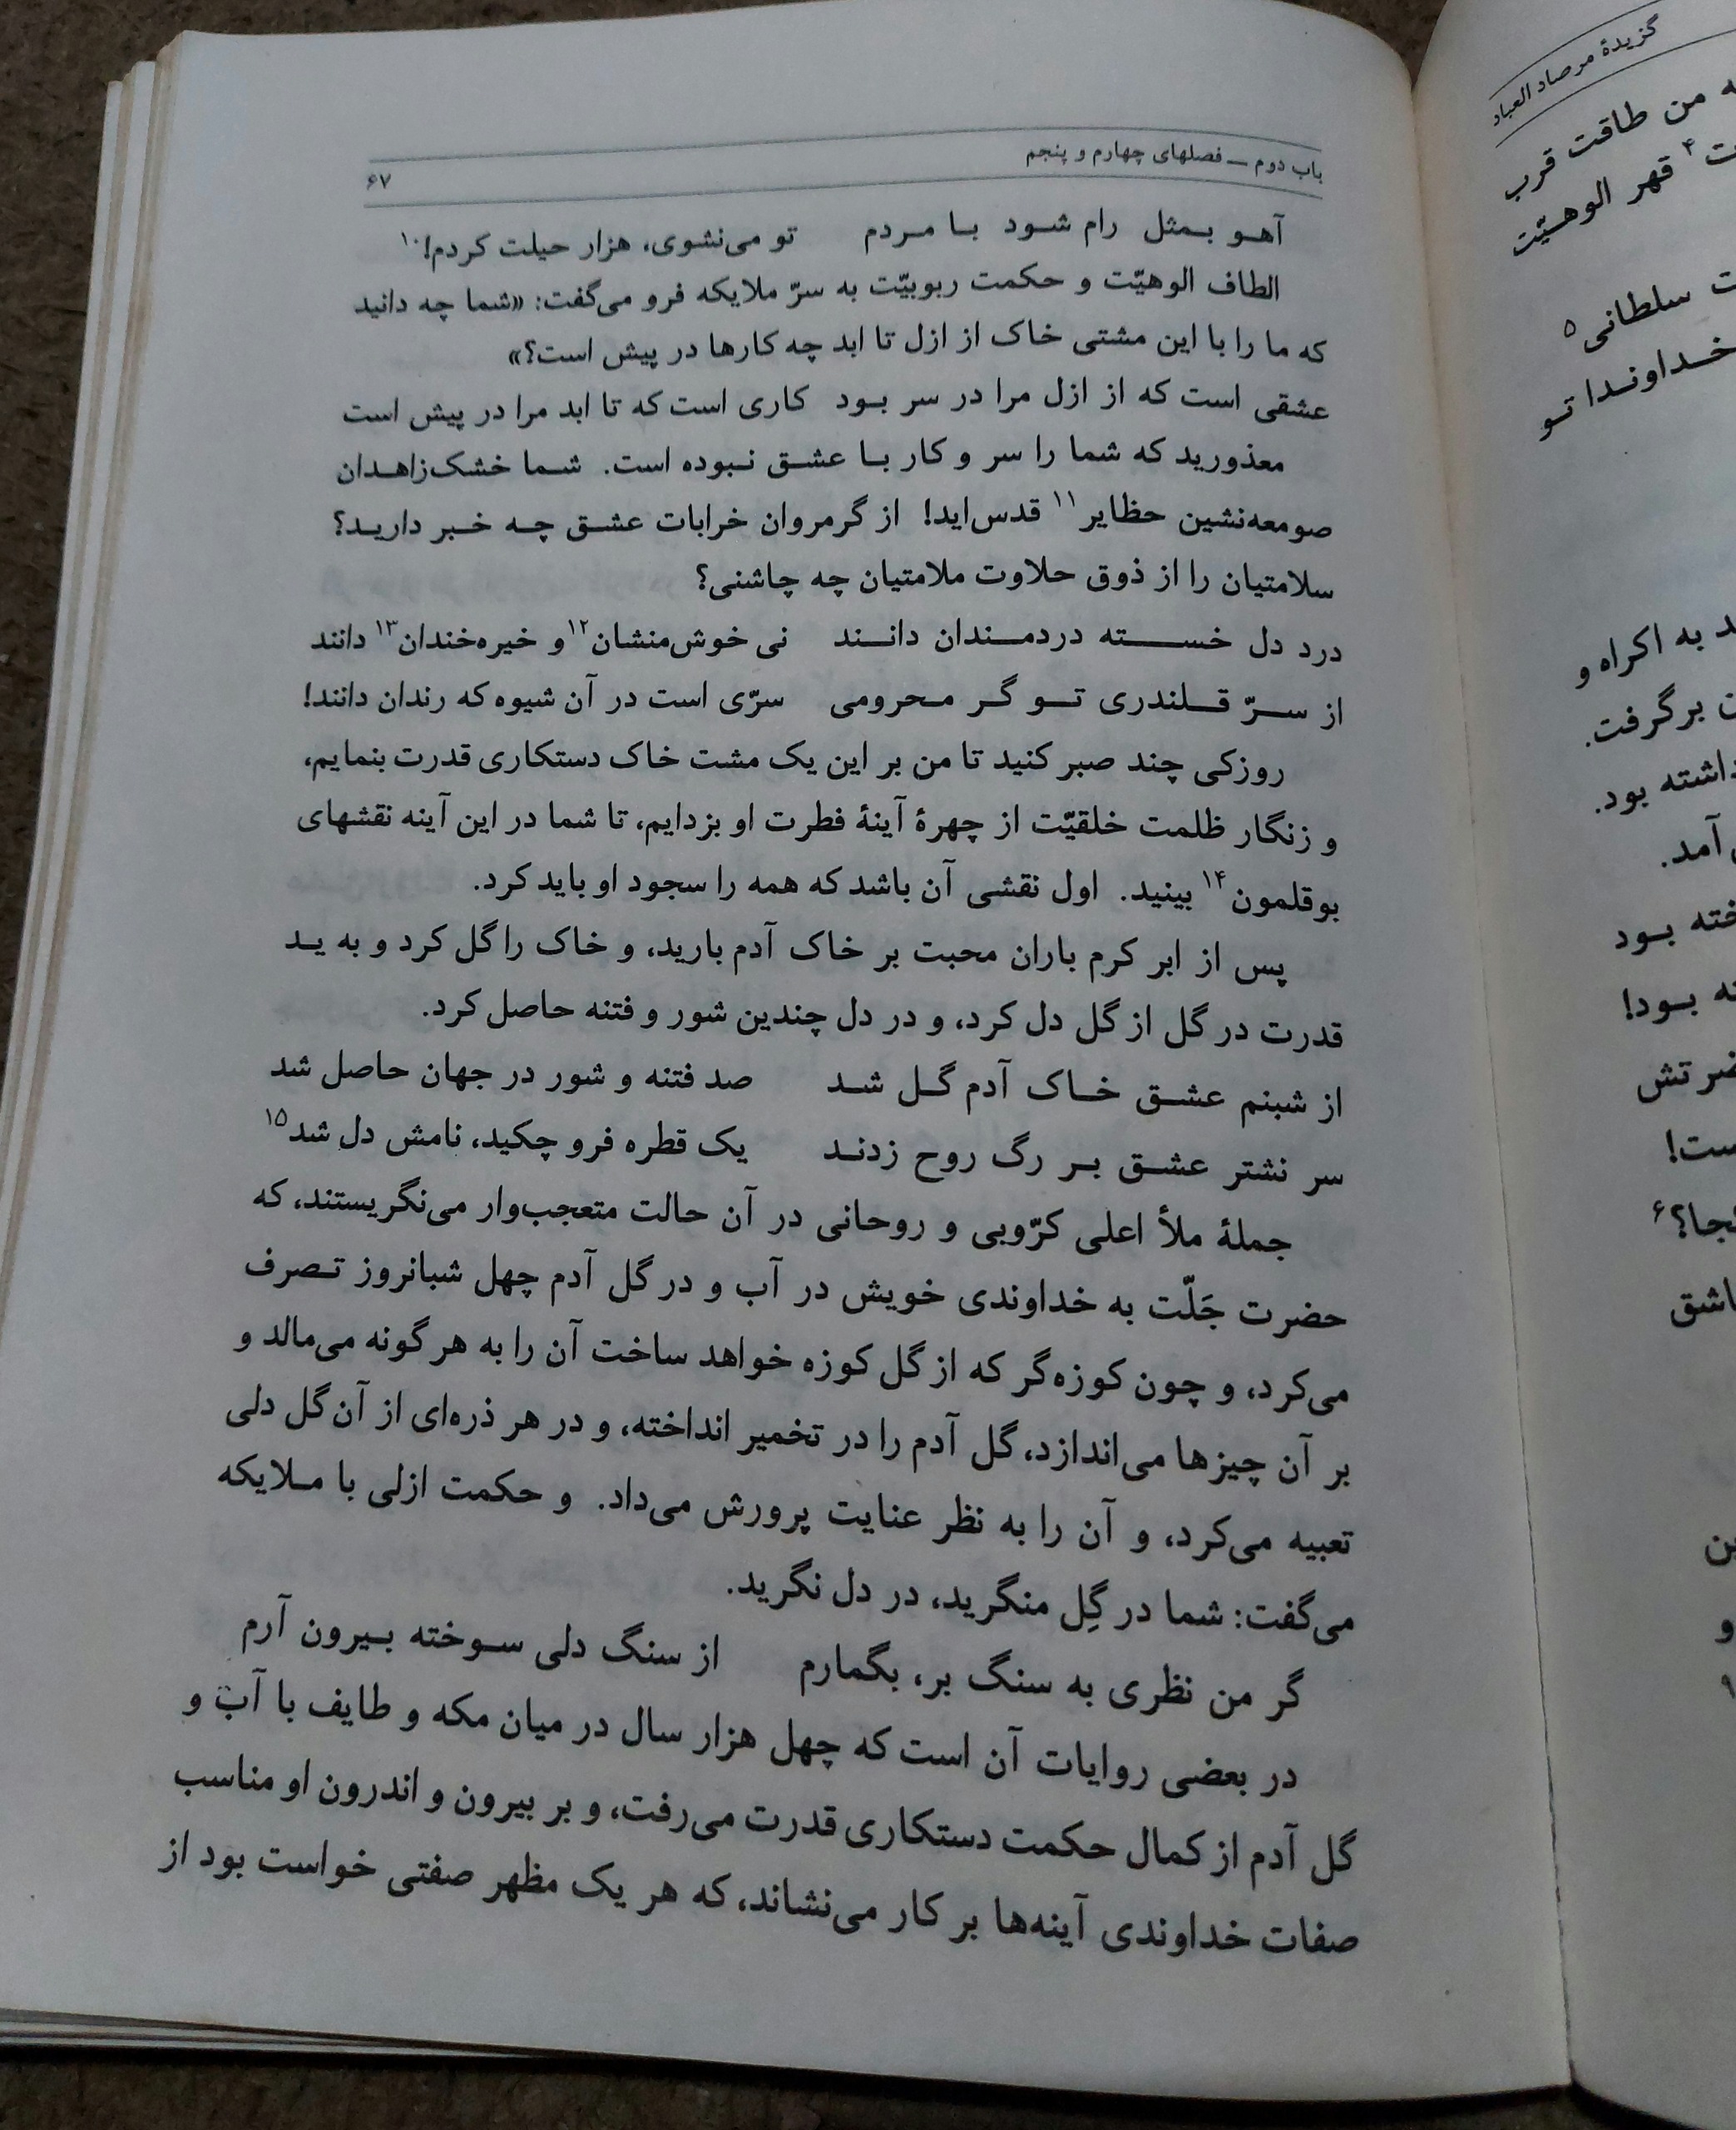 باب دوم — فصلهای چهارم و پنجم ۶۷
آهو بمثل رام شود با مردم تو می‌نشوی، هزار حیلت کردم!۱۰
الطاف الوهیّت و حکمت ربوبیّت به سرّ ملایکه فرو می‌گفت: «شما چه دانید
که ما را با این مشتی خاک از ازل تا ابد چه کارها در پیش است؟»
عشقی است که از ازل مرا در سر بود کاری است که تا ابد مرا در پیش است
معذورید که شما را سر و کار با عشق نبوده است. شما خشک‌زاهدان
صومعه‌نشین حظایر۱۱ قدس‌اید! از گرمروان خرابات عشق چه خبر دارید؟
سلامتیان را از ذوق حلاوت ملامتیان چه چاشنی؟
درد دل خسته دردمندان دانند نی خوش‌منشان۱۲ و خیره‌خندان۱۳ دانند
از سرّ قلندری تو گر محرومی سرّی است در آن شیوه که رندان دانند!
روزکی چند صبر کنید تا من بر این یک مشت خاک دستکاری قدرت بنمایم،
و زنگار ظلمت خلقیّت از چهرهٔ آینهٔ فطرت او بزدایم، تا شما در این آینه نقشهای
بوقلمون۱۴ بینید. اول نقشی آن باشد که همه را سجود او باید کرد.
پس از ابر کرم باران محبت بر خاک آدم بارید، و خاک را گل کرد و به ید
قدرت در گل از گل دل کرد، و در دل چندین شور و فتنه حاصل کرد.
از شبنم عشق خاک آدم گل شد صد فتنه و شور در جهان حاصل شد
سر نشتر عشق بر رگ روح زدند یک قطره فرو چکید، نامش دل شد۱۵
جملهٔ ملأ اعلی کرّوبی و روحانی در آن حالت متعجب‌وار می‌نگریستند، که
حضرت جَلّت به خداوندی خویش در آب و در گل آدم چهل شبانروز تصرف
می‌کرد، و چون کوزه‌گر که از گل کوزه خواهد ساخت آن را به هر گونه می‌مالد و
بر آن چیزها می‌اندازد، گل آدم را در تخمیر انداخته، و در هر ذره‌ای از آن گل دلی
تعبیه می‌کرد، و آن را به نظر عنایت پرورش می‌داد. و حکمت ازلی با ملایکه
می‌گفت: شما در گِل منگرید، در دل نگرید.
گر من نظری به سنگ بر، بگمارم از سنگ دلی سوخته بیرون آرم
در بعضی روایات آن است که چهل هزار سال در میان مکه و طایف با آب و
گل آدم از کمال حکمت دستکاری قدرت می‌رفت، و بر بیرون و اندرون او مناسب
صفات خداوندی آینه‌ها بر کار می‌نشاند، که هر یک مظهر صفتی خواست بود از
گزیدهٔ مرصاد العباد
من طاقت قرب
۴ قهر الوهیّت
سلطانی۵
خداوندا تو
به اکراه و
برگرفت.
داشته بود.
آمد.
بود
بود!
عاشق
و